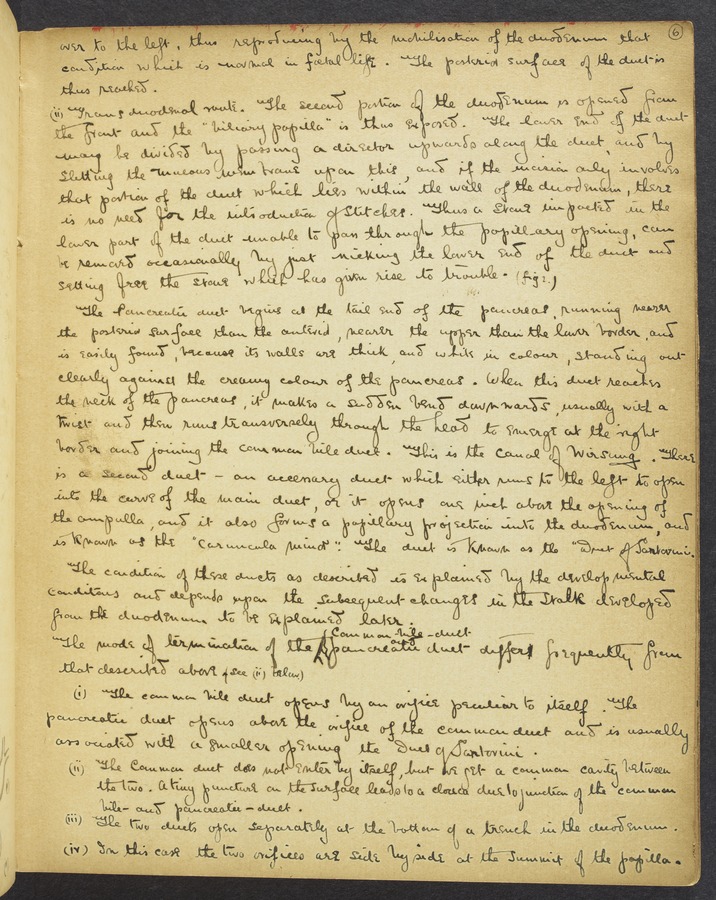 6
over to the left, thus reproducing by the mobilisation of the duodenum that
condition which is normal in fœtal life. The posterior surface of the duct is
thus reached.
(ii) Transduodenal route. The second portion of the duodenum is opened from
the front and the "biliary papilla" is thus exposed. The lower end of the duct
may be divided by passing a director upwards along the duct, and by
slitting the mucous membrane upon this, and if the incision only involves
that portion of the duct which lies within the wall of the duodenum, there
is no need for the introduction of stitches. Thus a stone impacted in the
lower part of the duct unable to pass through the papillary opening, can
be removed occasionally by just nicking the lower end of the duct and
setting free the stone which has given rise to trouble. (fig 2.)
The Pancreatic duct begins at the tail end of the pancreas, running nearer
the posterior surface than the anterior, nearer the upper than the lower border, and
is easily found, because its walls are thick and white in colour, standing out
clearly against the creamy colour of the pancreas. When this duct reaches
the neck of the pancreas, it makes a sudden bend downwards, usually with a
twist and then runs transversely through the head to emerge at the right
border and joining the common bile duct. This is the canal of Wirsung. There
is a second duct - an accessory duct which either runs to the left to open
into the curve of the main duct, or it opens one inch above the opening of
the ampulla, and it also forms a papillary projection into the duodenum, and
is known as the "caruncula minor". The duct is known as the "Duct of Santorini.
The condition of these ducts as described is explained by the developmental
conditions and depends upon the subsequent changes in the stalk developed
from the duodenum to be explained later.
The mode of termination of the common bile-duct and pancreatic duct differs frequently from
that described above (see (ii) below)
(i) The common bile duct opens by an orifice peculiar to itself. The
pancreatic duct opens above the orifice of the common duct and is usually
associated with a smaller opening the Duct of Santorini.
(ii) The common duct does not enter by itself, but we get a common cavity between
the two. A tiny puncture on the surface leads to a cloaca due to junction of the common
bile- and pancreatic-duct.
(iii) The two ducts open separately at the bottom of a trench in the duodenum.
(iv) In this case the two orifices are side by side at the summit of the papilla.